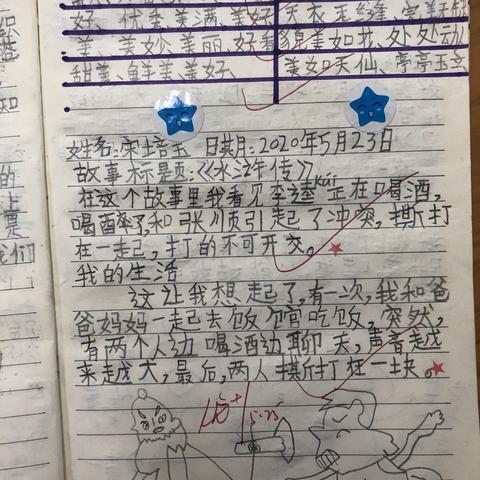 好、优美、美满、美好
美、美妙、美丽、好看
甜美、鲜美、美好、
天衣无缝、完美无缺
美如花、处处动
美如天仙、亭亭玉立
姓名:宋培玉 日期:2020年5月23日
故事标题:《水浒传》
在这个故事里我看见李逵kuí正在喝酒,
喝醉了,和张顺引起了冲突,撕打
在一起,打的不可开交。
我的生活
这让我想起了,有一次,我和爸
爸妈妈一起去饭馆吃饭,突然,
有两个人边喝酒边聊天,声音越
来越大,最后,两人撕打在一块。
我们